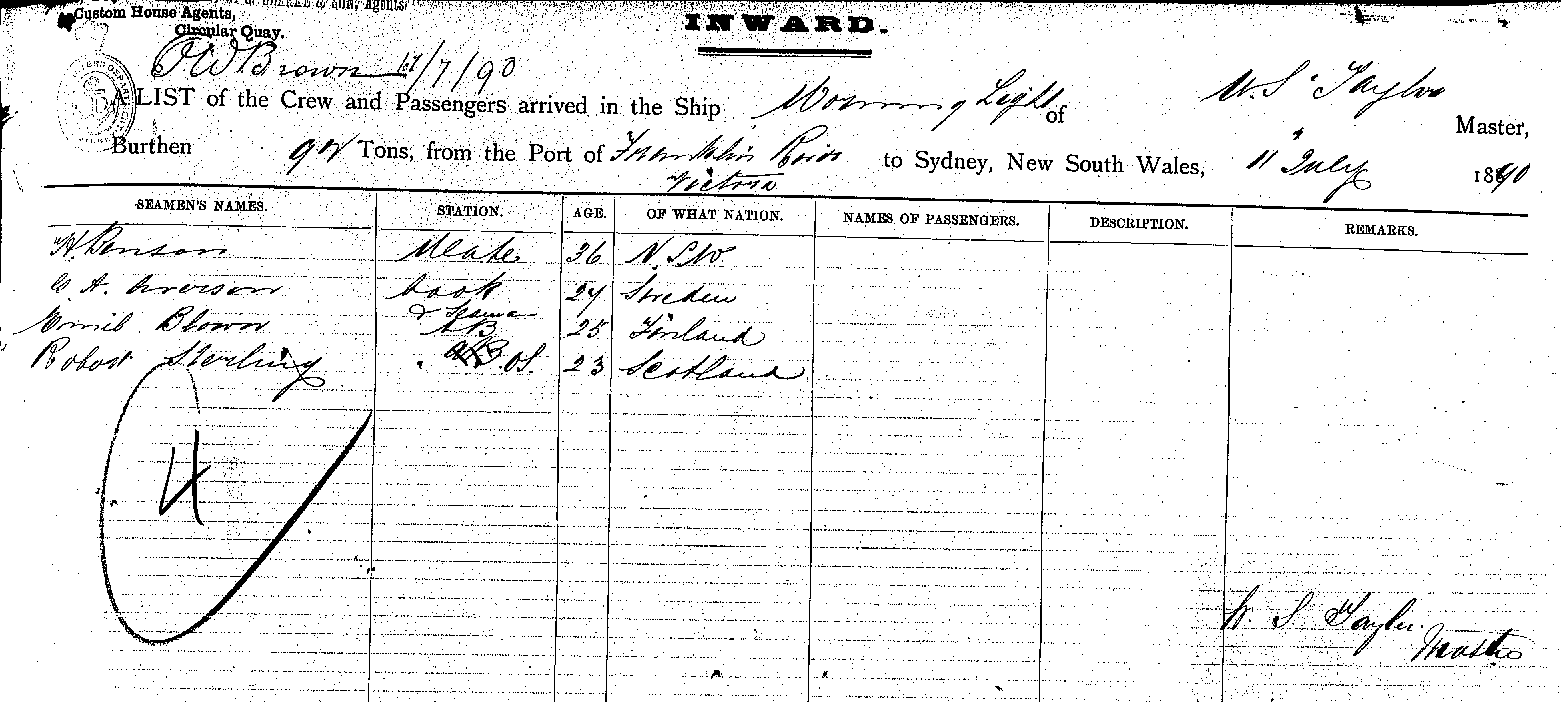 Agents,
Custom House Agents,
Circular Quay.
INWARD.
Brown /7/90
A LIST of the Crew and Passengers arrived in the Ship Morning Light of W. S. Taylor Master,
Burthen Tons, from the Port of Franklin River to Sydney, New South Wales, 11 July 1890
Victoria
SEAMEN'S NAMES. STATION. AGE. OF WHAT NATION. NAMES OF PASSENGERS. DESCRIPTION. REMARKS.
H. Benson Mate 36 N.S.W.
A. Cook 24 Sweden
&
Emil Blown AB 25 Finland
Robert Sterling OS. 23 Scotland
4
W. S. Tayler.
Master